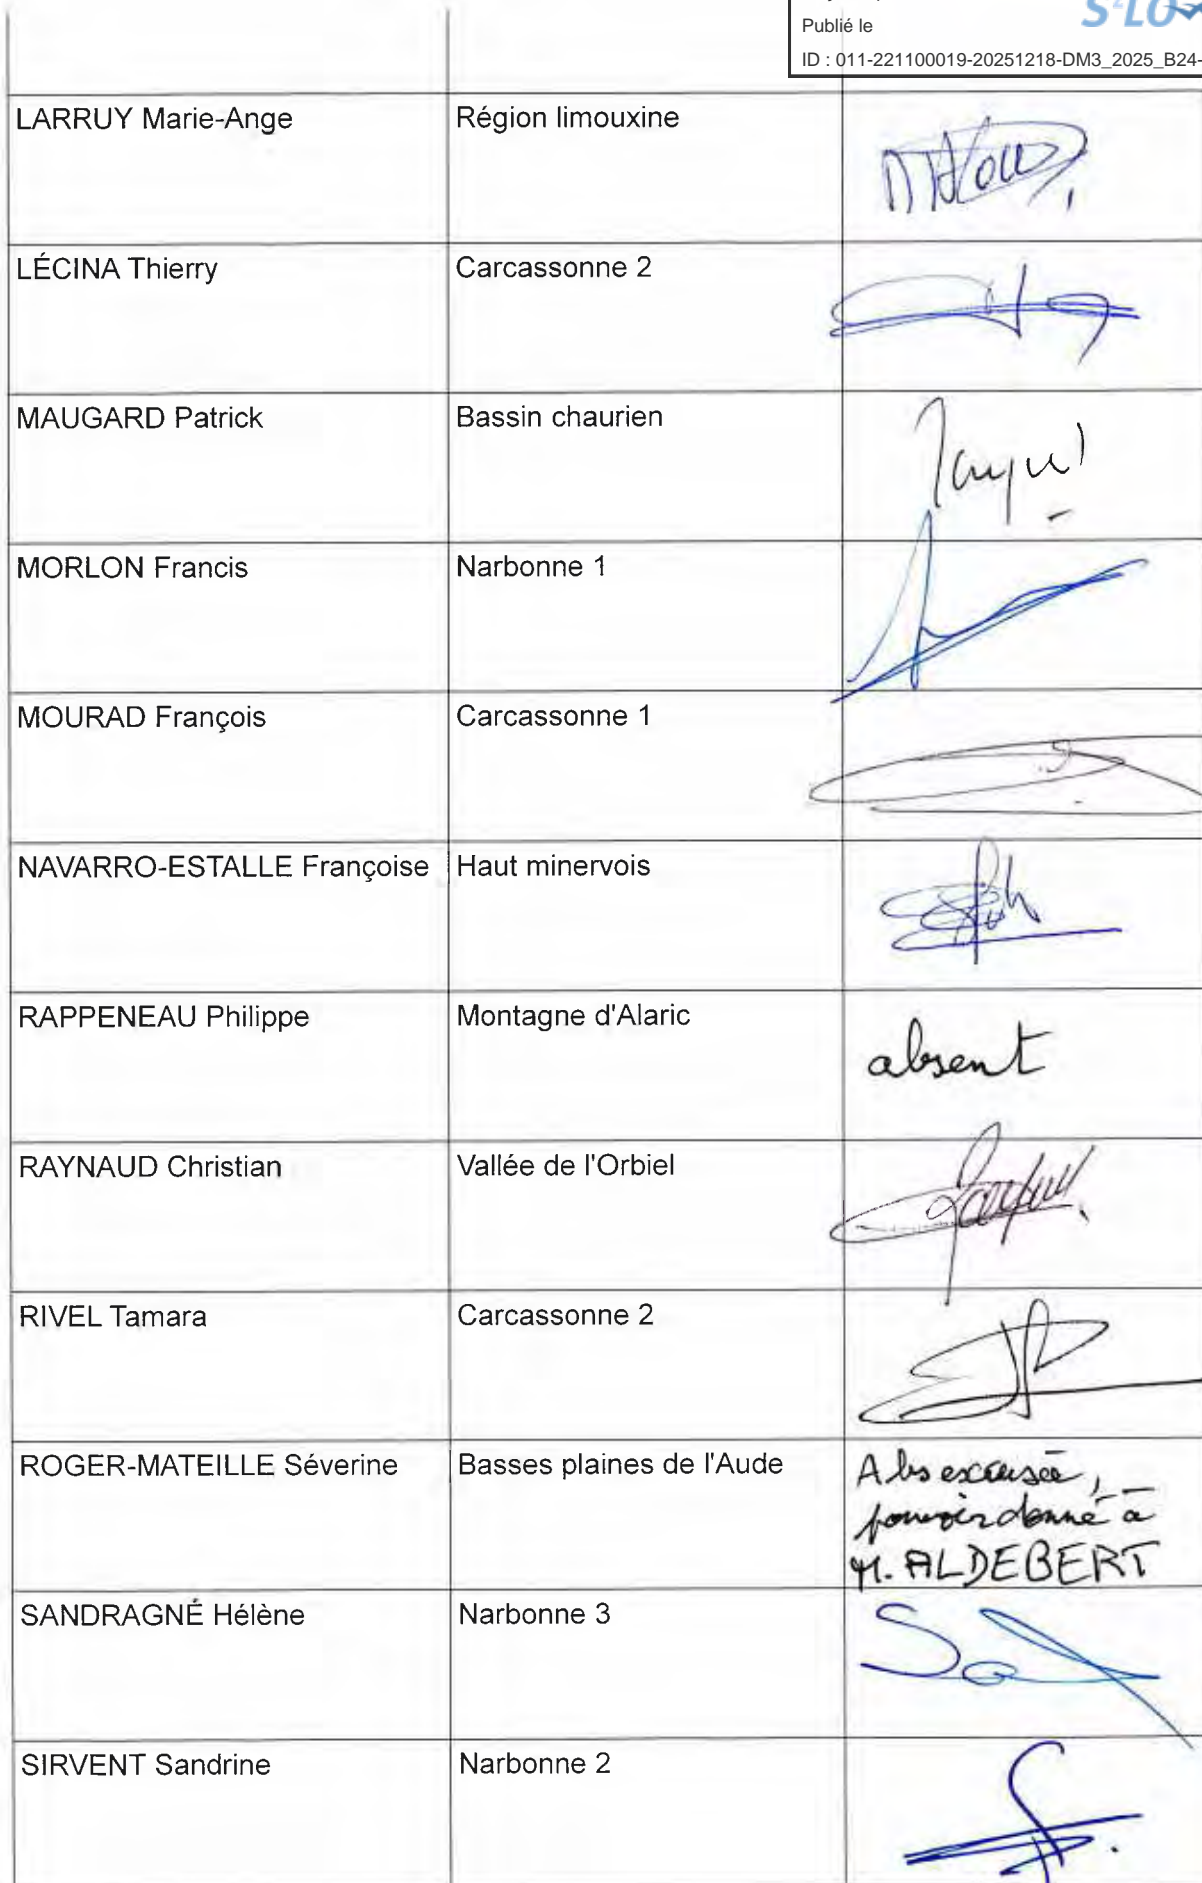 Publié le
S²LO
ID : 011-221100019-20251218-DM3_2025_B24-
LARRUY Marie-Ange Région limouxine
LÉCINA Thierry Carcassonne 2
MAUGARD Patrick Bassin chaurien
MORLON Francis Narbonne 1
MOURAD François Carcassonne 1
NAVARRO-ESTALLE Françoise Haut minervois
RAPPENEAU Philippe Montagne d'Alaric absent
RAYNAUD Christian Vallée de l'Orbiel
RIVEL Tamara Carcassonne 2
ROGER-MATEILLE Séverine Basses plaines de l'Aude Abs excusée,
pouvoir donné à
M. ALDEBERT
SANDRAGNÉ Hélène Narbonne 3
SIRVENT Sandrine Narbonne 2